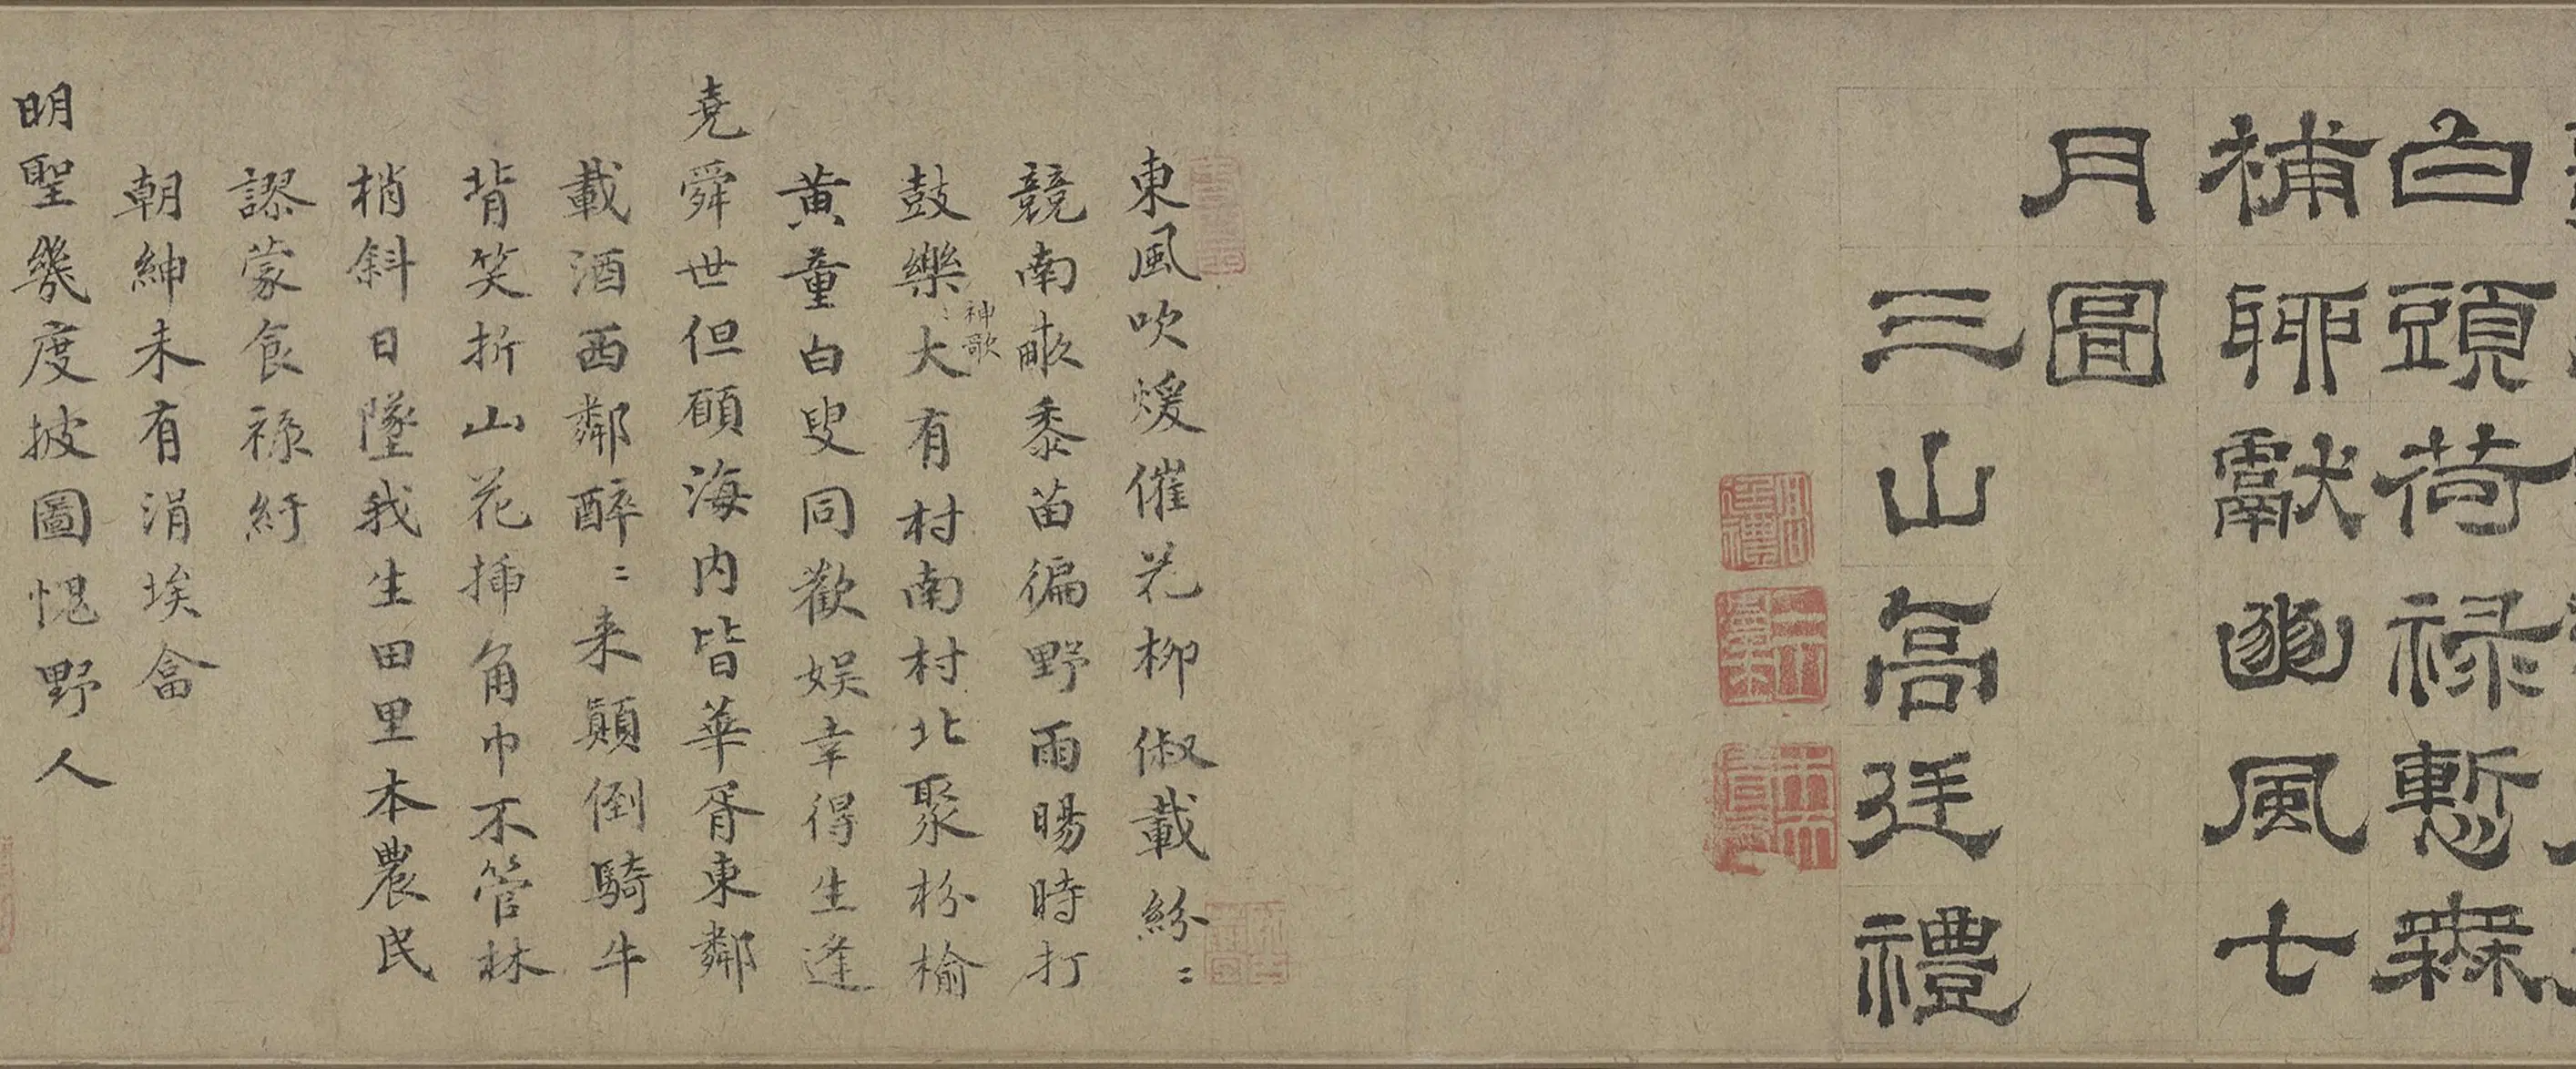 白頭荷祿慙無
補聊獻豳風七
月圖
三山高廷禮
東風吹煖催花柳俶載紛〻
競南畝黍苗徧野雨暘時打
鼓樂〻神歌大有村南村北聚枌榆
黃童白叟同歡娛幸得生逢
堯舜世但願海內皆華胥東鄰
載酒西鄰醉〻来顛倒騎牛
背笑折山花插角巾不管林
梢斜日墜我生田里本農民
謬蒙食祿紆
朝紳未有涓埃畣
明聖幾度披圖愧野人